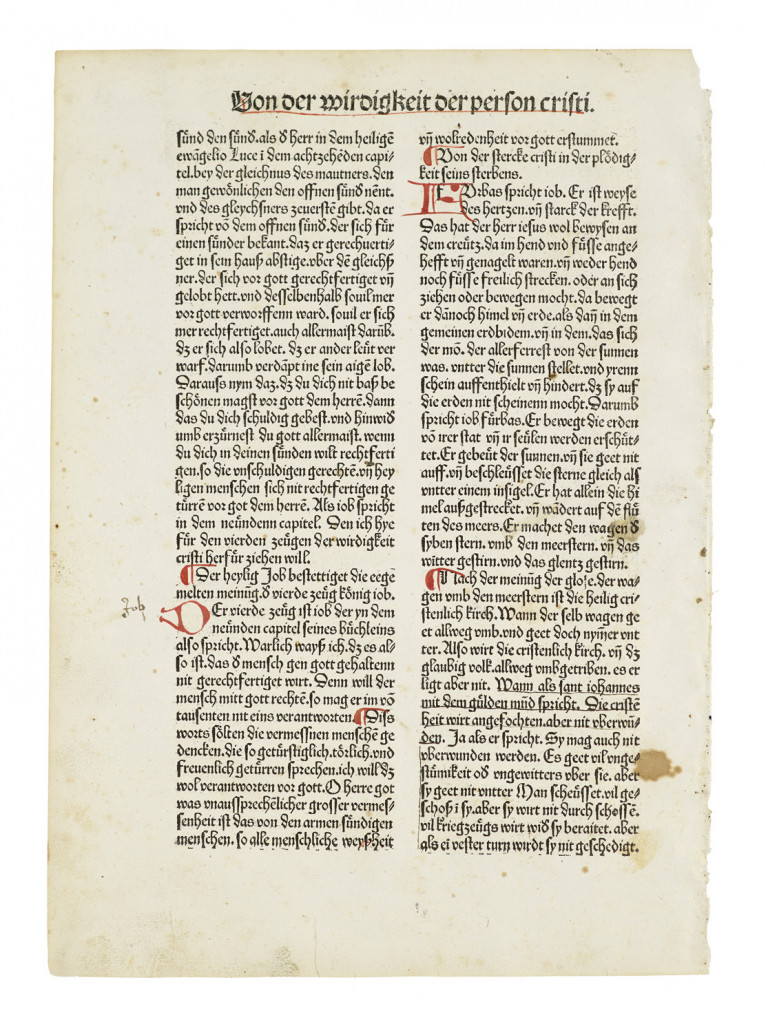 Von der wirdigkeit der person cristi.
sünd den sünd.als đ herr in dem heiligē
ewāgelio Luce ī dem achtzehēden capi⸗
tel.bey der gleichnus des mautners.den
man gewönlichen den offnen sünđ nēnt.
vnd des gleychsners zeuerstē gibt.da er
spricht vō dem offnen sünđ.der sich für
einen sünder bekant.daz er gerechuerti⸗
get in sein hauß abstige.vber dē gleichß⸗
ner.der sich vor gott gerechtfertiget vn̄
gelobt hett.vnd desselbenhalb souil mer
vor gott verworffenn ward. souil er sich
mer rechtfertiget.auch allermaist darūb.
dz er sich also lobet. dz er ander leüt ver
warf.darumb verdāpt ine sein aigē lob.
Darauss nym daz.dz du dich nit baß be
schönen magst vor gott dem herrē.dann
das du dich schuldig gebest.vnd hinwiđ
umb erzürnest du gott allermaist. wenn
du dich in deinen sünden wilt rechtferti
gen.so die vnschuldigen gerechtē.vn̄ hey
ligen menschen sich nit rechtfertigen ge
türrē vor got dem herrē. Als iob spricht
in dem neündenn capitel. Den ich hye
für den vierden zeügen der wirdigkeit
cristi herfür ziehen will.
Der heylig Job bestettiget die eege
melten meinūg.đ vierde zeüg könig iob.
Job
DEr vierde zeüg ist iob der yn dem
neünden capitel seines büchleins
also spricht.Warlich wayß ich.dz es al⸗
so ist.das đ mensch gen gott gehaltenn
nit gerechtfertiget wirt. Denn will der
mensch mitt gott rechtē.so mag er im vō
tausenten nit eins verantworten. Diss
worts sölten die vermessnen menschē ge
dencken.die so getürstiglich.törlich.vnd
freuenlich getürren sprechen.ich will dz
wol verantworten vor gott. O herre got
was vnaussprechēlicher grosser vermes⸗
senheit ist das von den armen sündigen
menschen. so alle menschliche weyßheit
vn̄ wolredenheit vor gott erstummet.
Von der stercke cristi in der plödig⸗
keit seins sterbens.
FUrbas spricht iob. Er ist weyse
des hertzen.vn̄ starck der krefft.
Das hat der herr iesus wol bewysen an
dem creütz.da im hend vn̄ füsse ange⸗
hefft vn̄ genagelt waren.vn̄ weder hend
noch füsse freilich strecken. oder an sich
ziehen oder bewegen mocht.da bewegt
er dānoch himel vn̄ erde.als dan̄ in dem
gemeinen erdbidem.vn̄ in dem.das sich
der mō. der allerferrest von der sunnen
was. vntter die sunnen stellet.vnd yrenn
schein auffenthielt vn̄ hindert.dz sy auf
die erden nit scheinenn mocht.Darumb
spricht iob fürbas.Er bewegt die erden
vō irer stat vn̄ ir seülen werden erschüt⸗
tet.Er gebeüt der sunnen.vn̄ sie geet nit
auff.vn̄ beschleüsset die sterne gleich als
vntter einem insigel.Er hat allein die hi
mel außgestrecket.vn̄ wādert auf dē flü⸗
ten des meers.Er machet den wagen đ
syben stern. vmb den meerstern. vn̄ das
witter gestirn.vnd das glentz gestirn.
Nach der meinūg der glose.der wa⸗
gen vmb den meerstern ist die heilig cri⸗
stenlich kirch. Wann der selb wagen ge
et allweg vmb.vnd geet doch nym̄er vnt
ter. Also wirt die cristenlich kirch. vn̄ dz
glaubig volk.allweg vmbgetriben. es er
ligt aber nit. Wann als sant iohannes
mit dem gülden mūd spricht. Die cristē
heit wirt angefochten.aber nit vberwū⸗
den. Ja als er spricht. Sy mag auch nit
vberwunden werden. Es geet vil vnge⸗
stümikeit ođ vngewitters vber sie. aber
sy geet nit vntter Man scheüsset.vil ge⸗
schoß ī sy.aber sy wirt nit durch schossē.
vil kriegzeügs wirt wiđ sy beraitet. aber
als eī vester turn wirdt sy nit geschedigt.